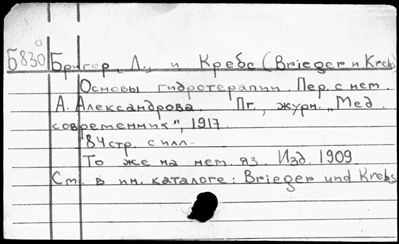 Б830
Бригер, Л., и Кребс (Brieger и Krebs)
Основы гидротерапии. Пер. с нем.
А. Александрова. Пг., журн. "Мед.
современник", 1917.
84 стр. с илл.
То же на нем. яз. Изд. 1909.
См. в ин. каталоге: Brieger und Krebs